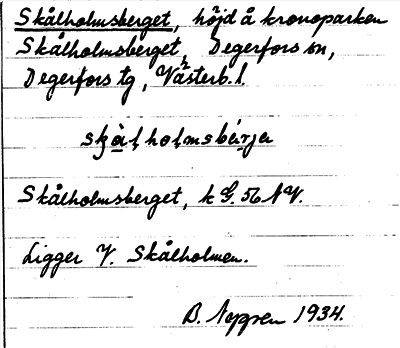 Skålholmsberget, höjd å kronoparken
Skålholmsberget, Degerfors sn,
Degerfors tg, Västerb. l.
skålholmsbärje
Skålholmsberget, k G. 56 NV.
Ligger V. Skålholmen.
B. Nygren 1934.